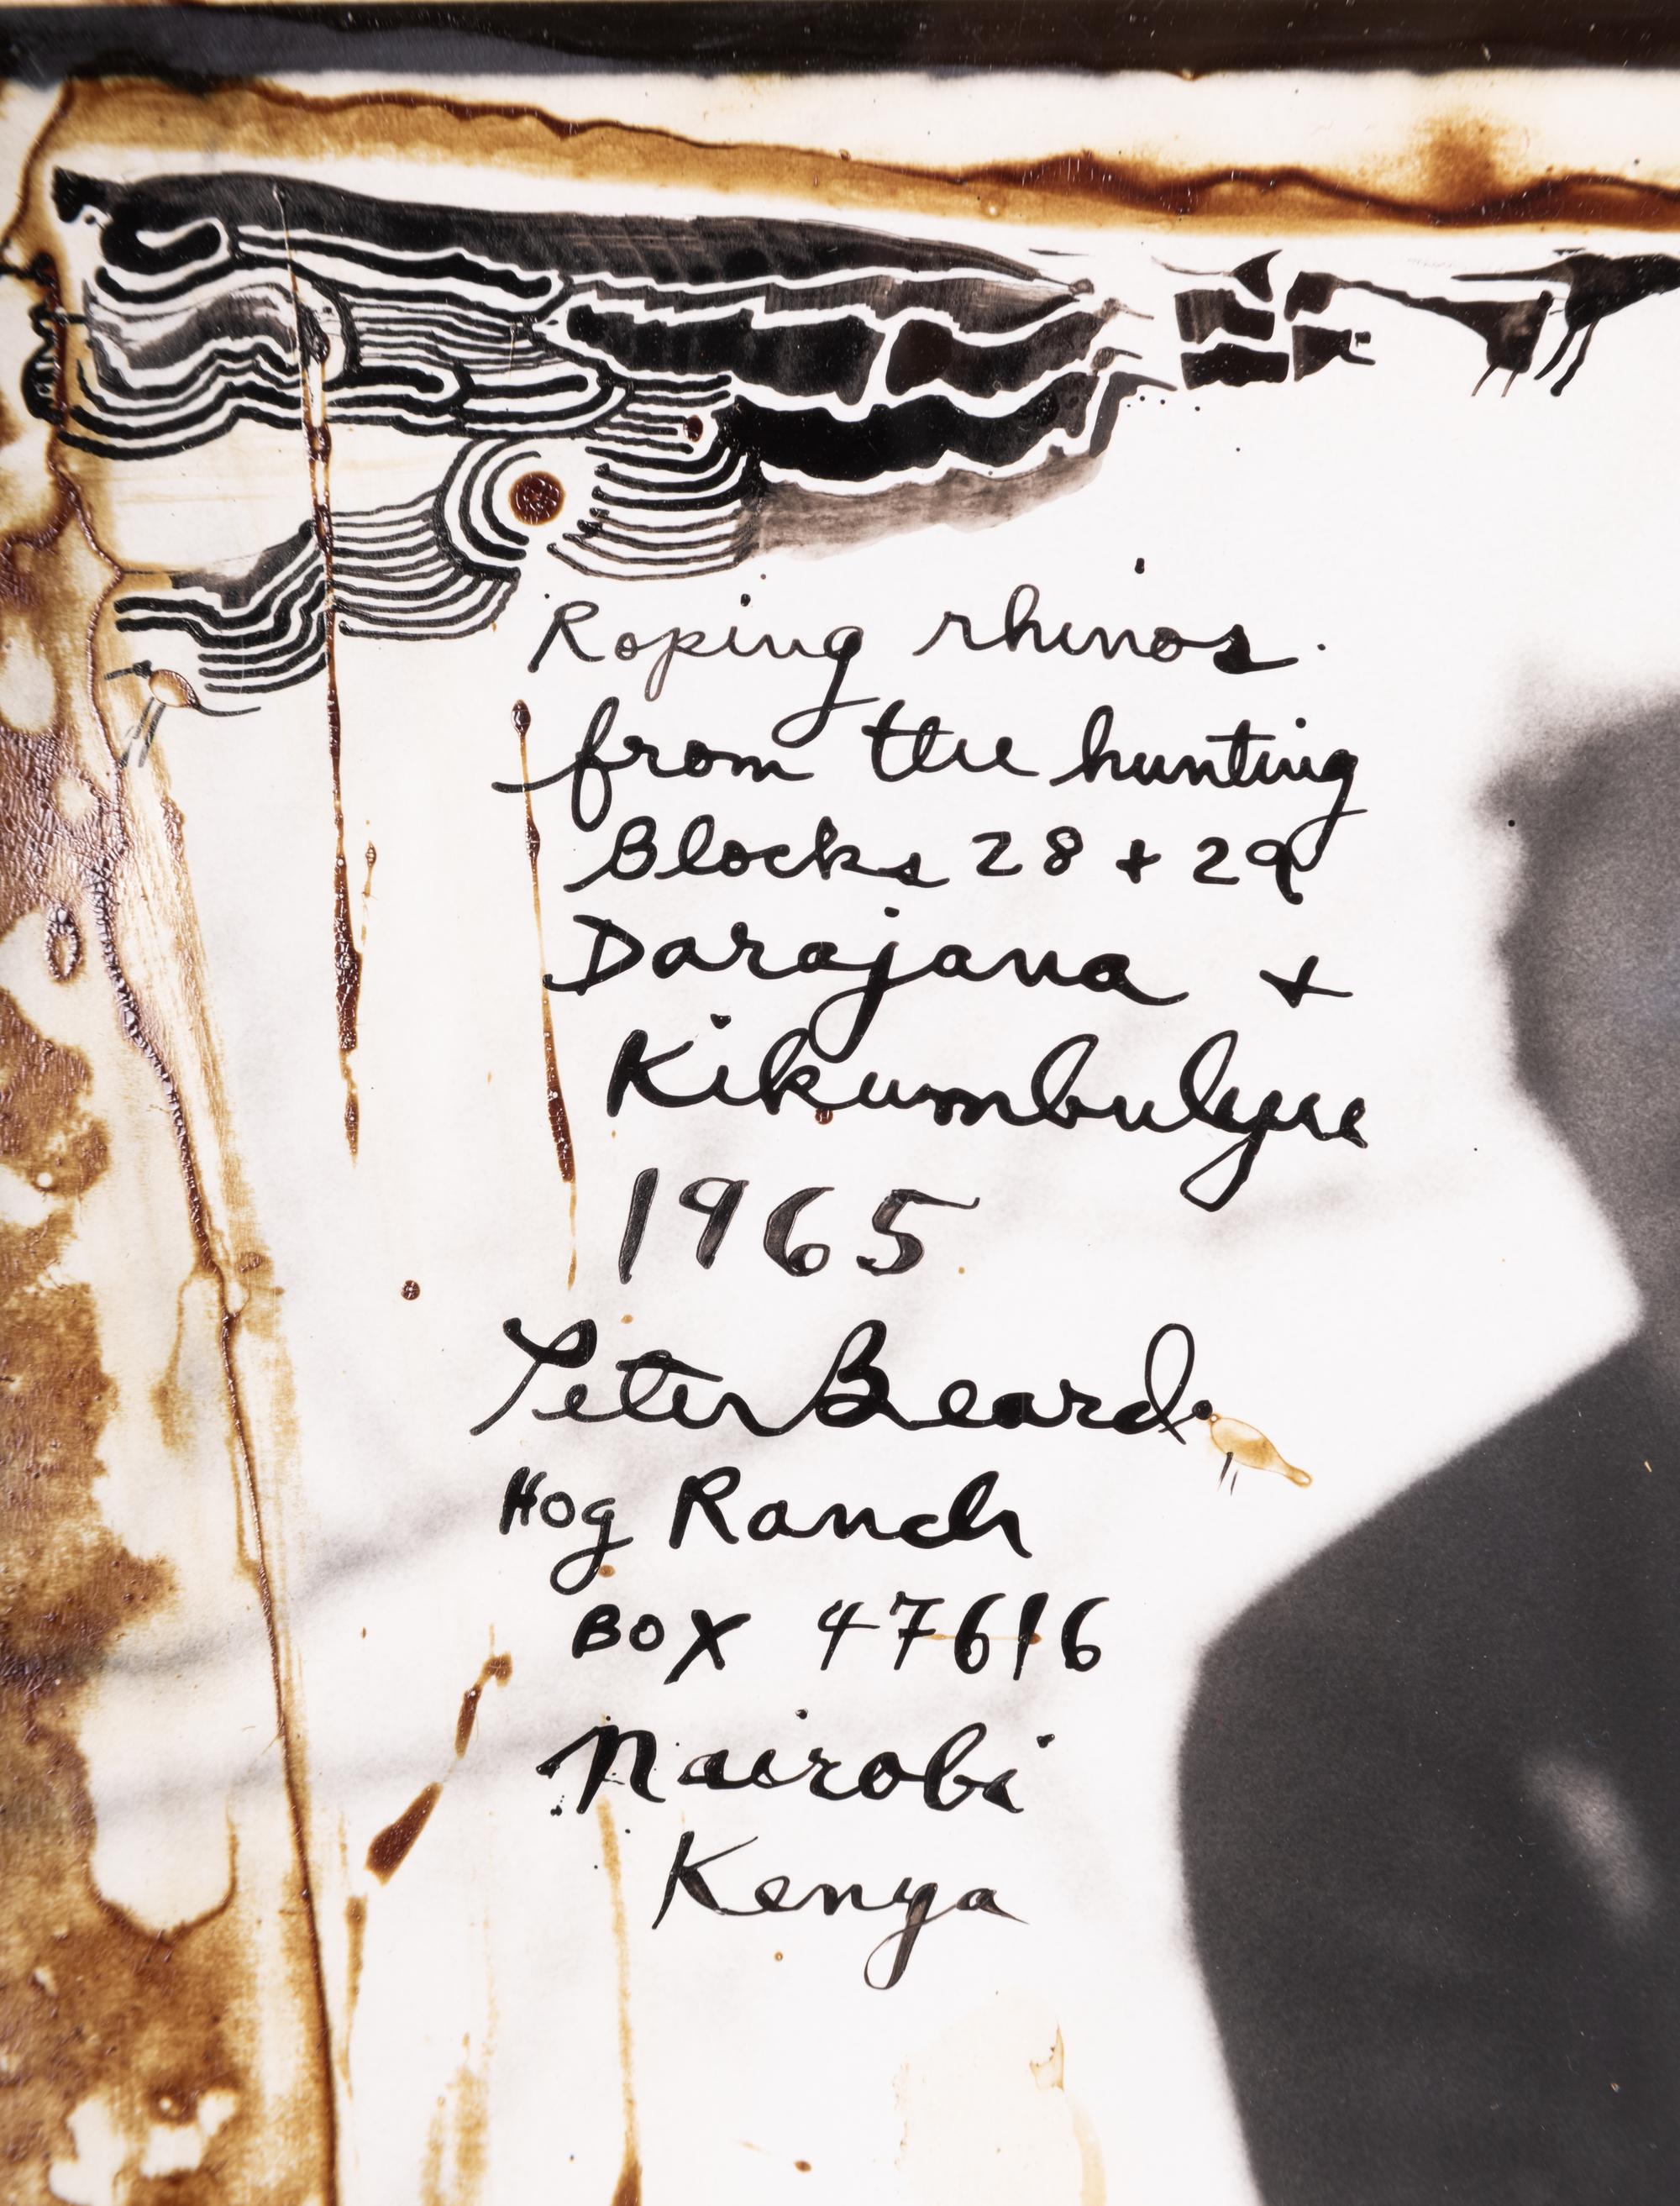 Roping rhinos.
from the hunting
Blocks 28 + 29
Darajana +
Kikumbulyu
1965
Peter Beard
Hog Ranch
BOX 47616
Nairobi
Kenya